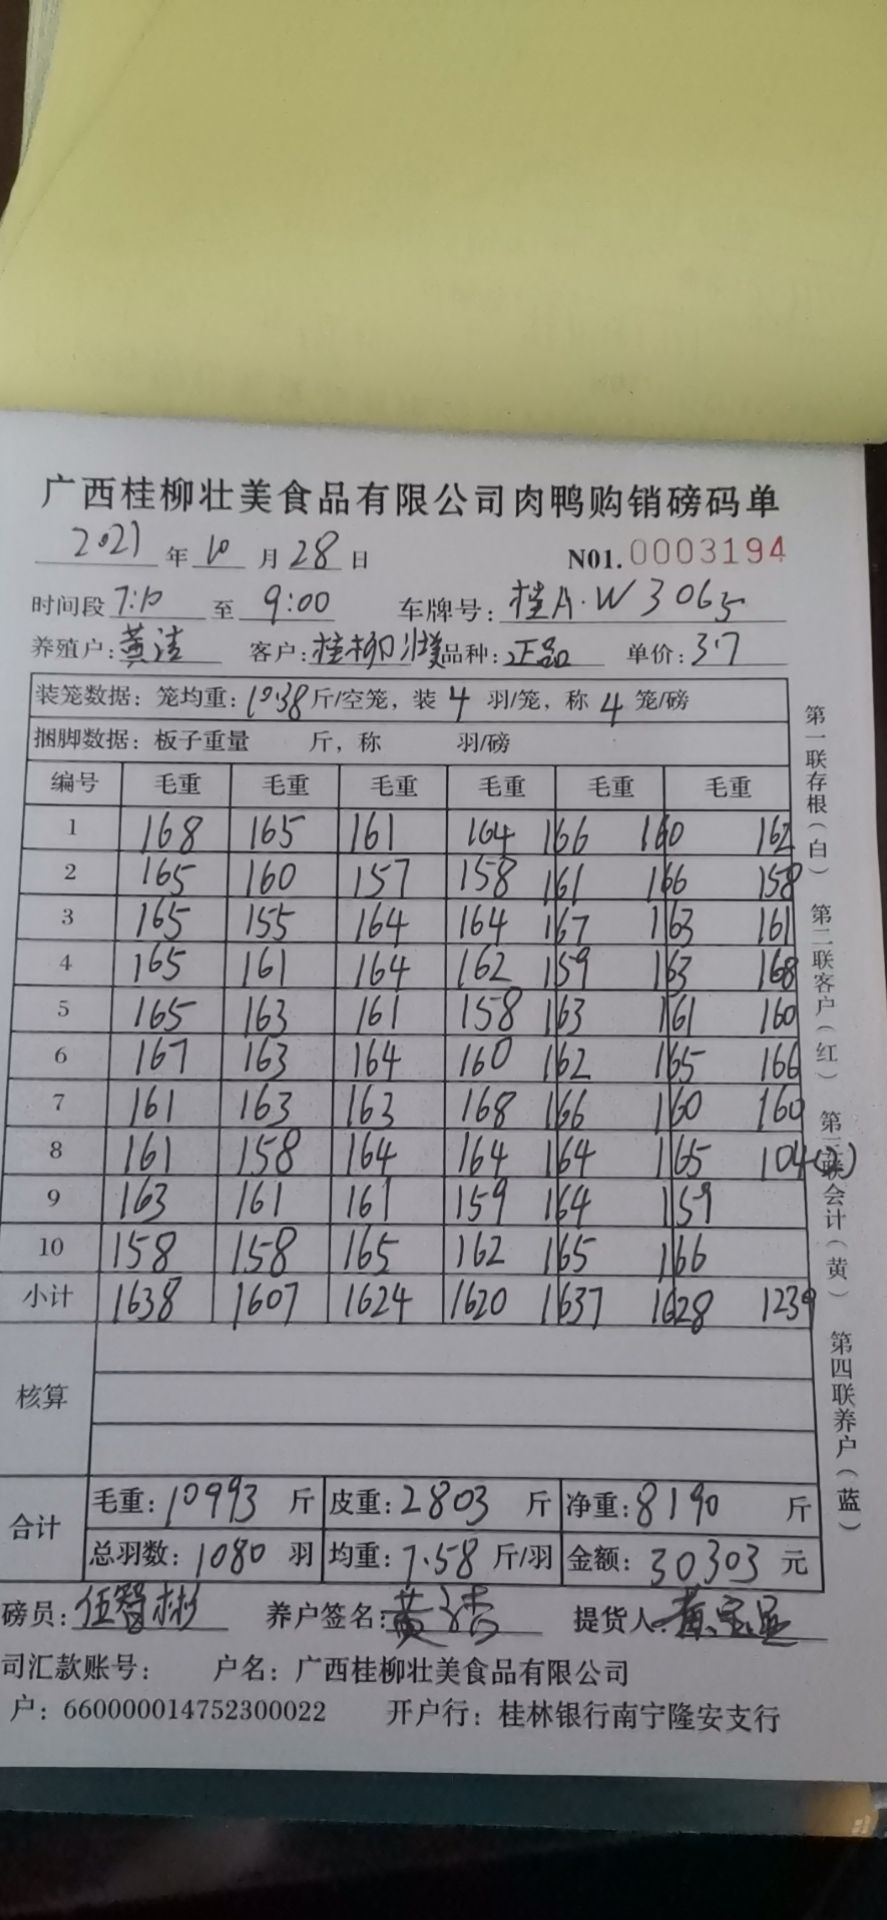 广西桂柳壮美食品有限公司肉鸭购销磅码单
2021年10月28日 N01.0003194
时间段7:10至9:00 车牌号:桂A·W3065
养殖户:黄洁 客户:桂柳壮美品种:正品 单价:3.7
装笼数据:笼均重:10.38斤/空笼,装4羽/笼,称4笼/磅
捆脚数据:板子重量 斤,称 羽/磅
编号 毛重 毛重 毛重 毛重 毛重 毛重
1 168 165 161 164 166 160 162
2 165 160 157 158 161 166 158
3 165 155 164 164 167 163 161
4 165 161 164 162 159 163 168
5 165 163 161 158 163 161 160
6 167 163 164 160 162 165 166
7 161 163 163 168 166 160 160
8 161 158 164 164 164 165 104
9 163 161 161 159 164 159
10 158 158 165 162 165 166
小计 1638 1607 1624 1620 1637 1628 1239
核算
合计 毛重:10993斤 皮重:2803斤 净重:8190斤
总羽数:1080羽 均重:7.58斤/羽 金额:30303元
磅员:伍智彬 养户签名:黄洁 提货人:黄
司汇款账号: 户名:广西桂柳壮美食品有限公司
户:660000014752300022 开户行:桂林银行南宁隆安支行
第一联存根(白) 第二联客户(红) 第三联会计(黄) 第四联养户(蓝)